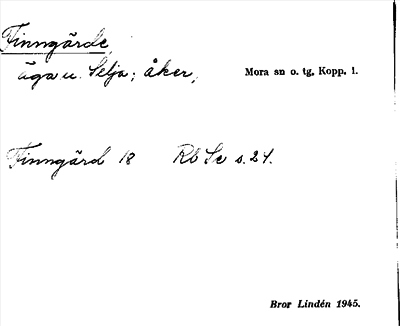 Finngärde,
äga u. Selja; åker,
Mora sn o. tg, Kopp. l.
Finngärd 18 Rb Se s. 24.
Bror Lindén 1945.